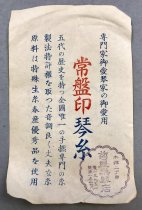 専門家御愛琴家の御愛用
常盤印 琴糸
五代の歴史を持つ全國唯一の手撚専門の糸
製法特許權を取つた音調良し丈夫な糸
原料は特殊生糸春産優秀品を使用